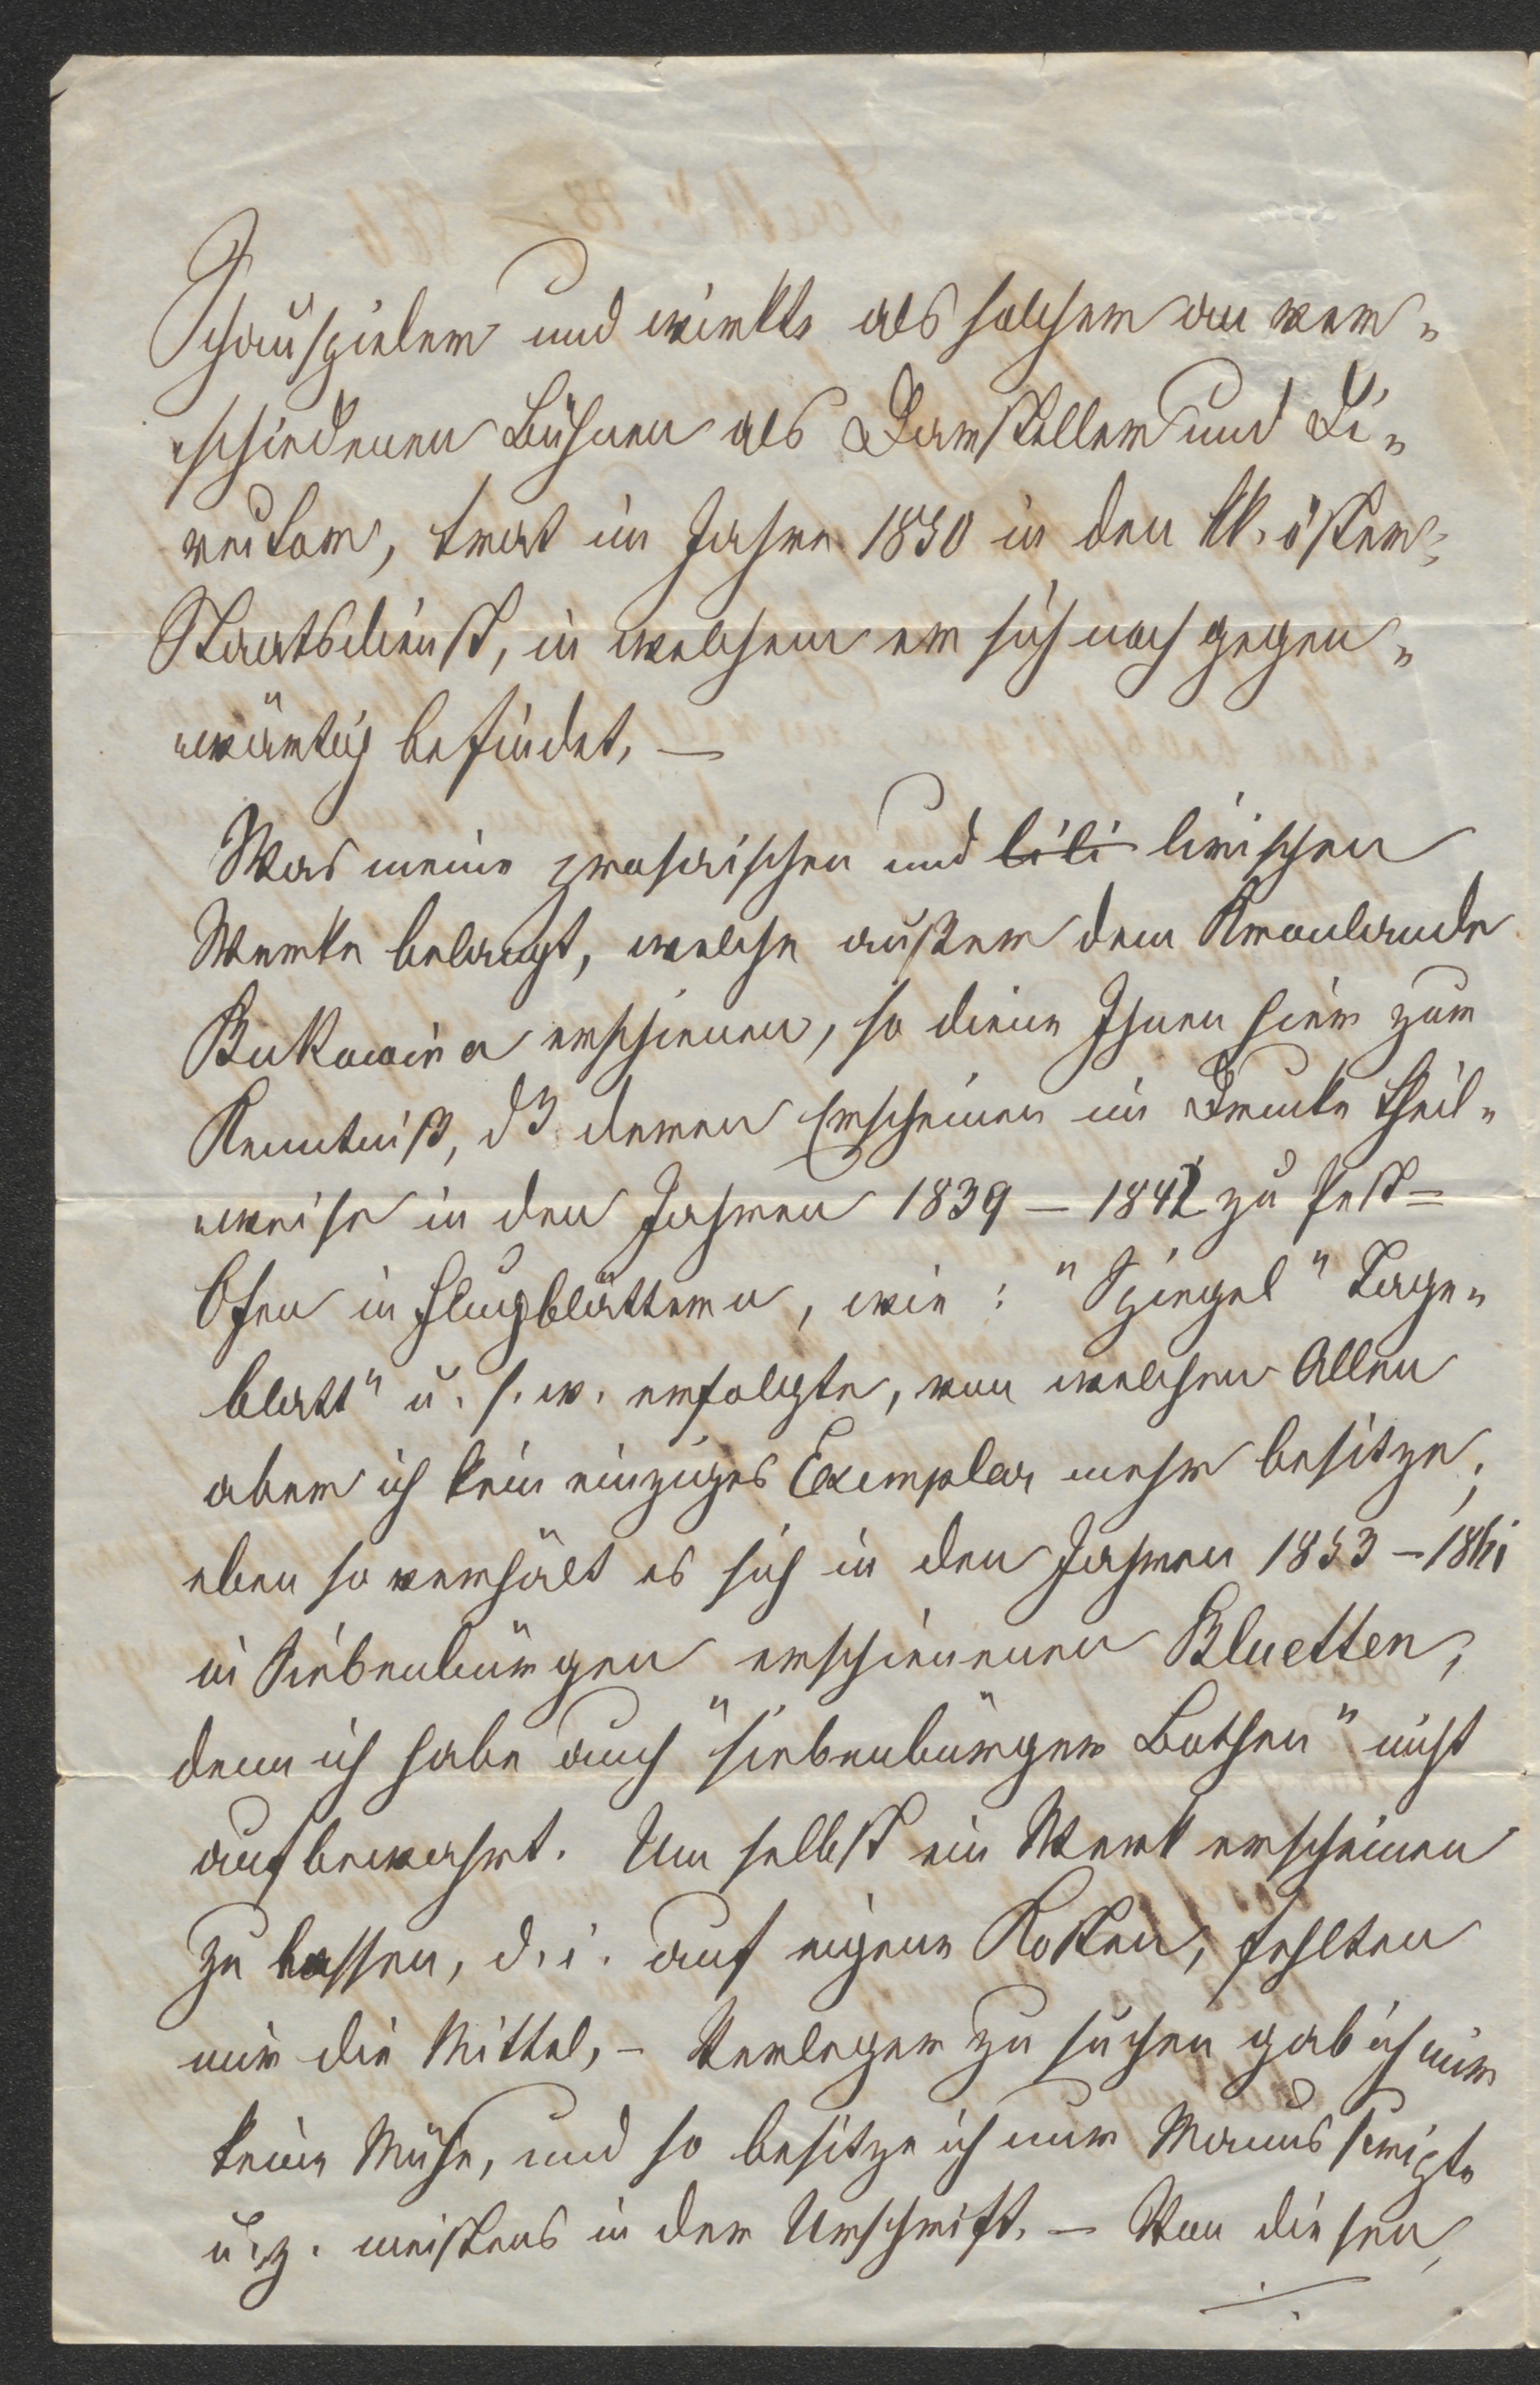 Schauspieler und wirkte als solcher an ver„
„schiedenen Bühnen als Darsteller und Di„
rector, trat im Jahre 1850 in den kk. österr.
Staatsdienst, in welchem er sich noch gegen„
„wärtig befindet, —
Was meine prosaischen und lili lirischen
Werke belangt, welche außer dem Kronlande
Bukowina erschienen, so diene Ihnen hier zur
Kenntniß, dß deren Erscheinen im Drucke theil„
„weise in den Jahren 1839 – 1842 zu Pest=
Ofen in Flugblättern, wie: "Spiegel" Tage„
blatt" u. s. w. erfolgte, von welchen Allen
aber ich kein einziges Exemplar mehr besitze;
eben so verhält es sich in den Jahren 1853 –
in Siebenbürgen erschienenen Bluetten,
denn ich habe auch "siebenbürger Bothen" nicht
aufbewahrt. Um selbst ein Werk erscheinen
zu lassen, d. i. auf eigene Kosten, fehlten
mir die Mittel, – Verleger zu suchen gab ich mir
keine Mühe, und so besitze ich nur Manuskripte
u. z. meistens in der Urschrift. – Von diesen
./.